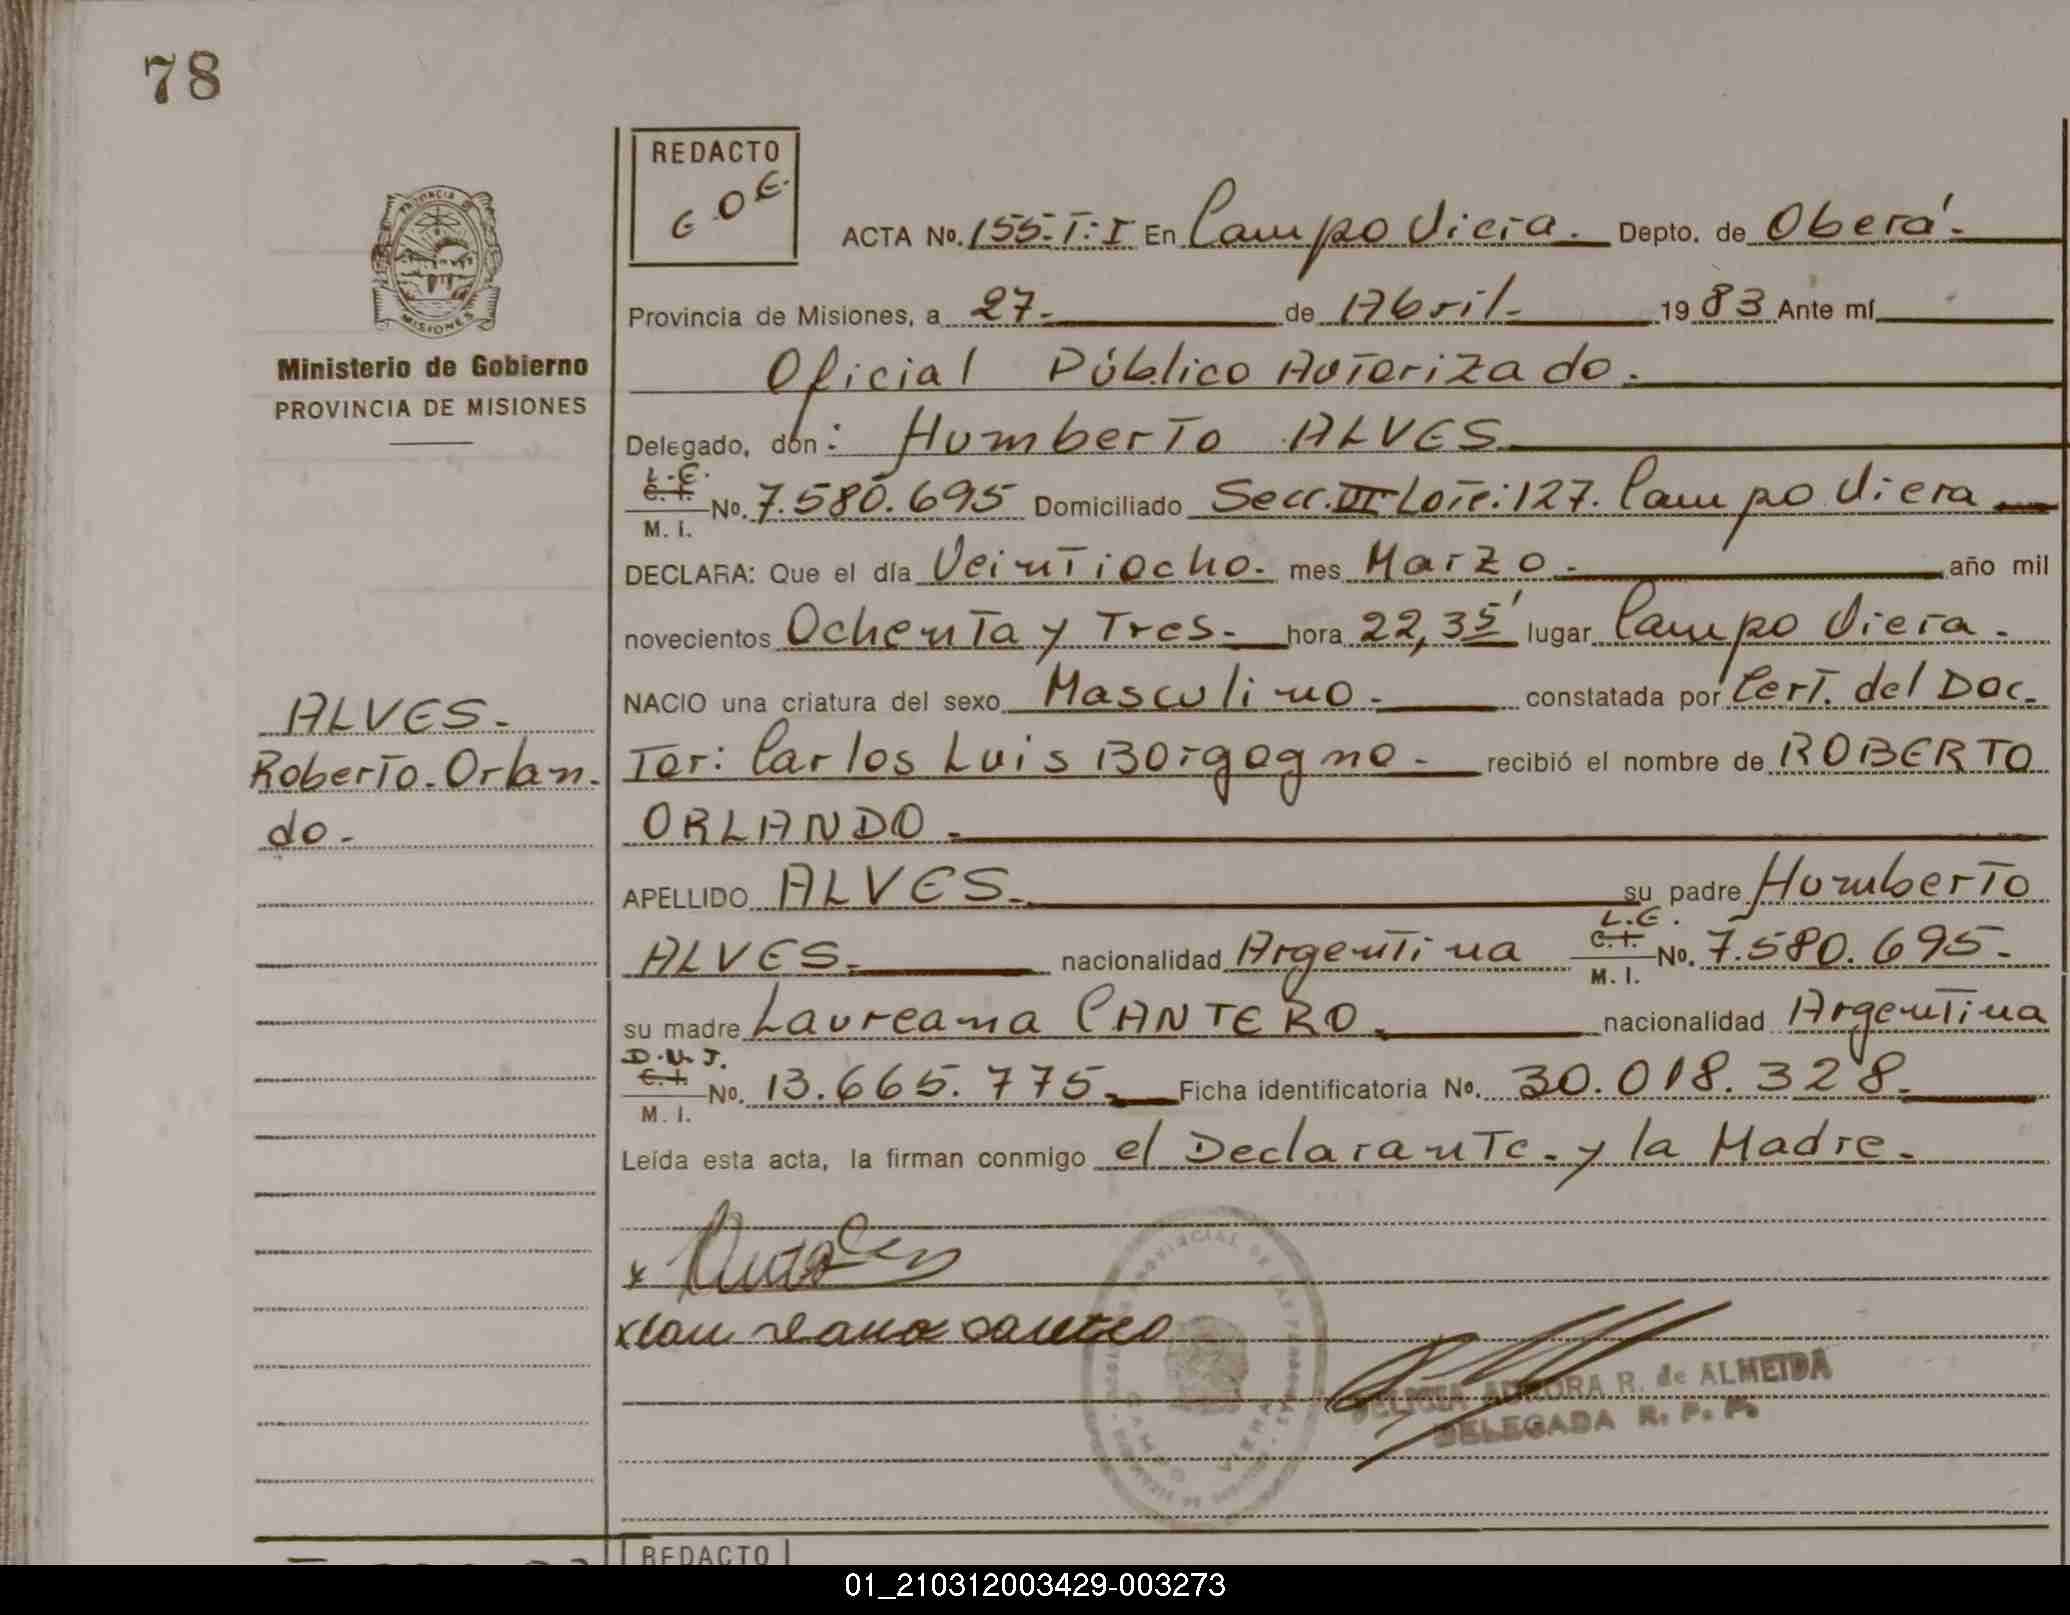 78
REDACTO
G O E.
PROVINCIA DE
MISIONES
Ministerio de Gobierno
PROVINCIA DE MISIONES
ACTA No. 155-T:I En Campo Viera. Depto. de Oberá.-
Provincia de Misiones, a 27.- de Abril.- 1983 Ante mí
Oficial Público Autorizado.
Delegado, don: Humberto ALVES
L.E.
C. I. No. 7.580.695 Domiciliado Secc. VI Lote: 127. Campo Viera
M. I.
DECLARA: Que el día Veintiocho.- mes Marzo.- año mil
novecientos Ochenta y Tres.- hora 22,35' lugar Campo Viera.-
NACIO una criatura del sexo Masculino.- constatada por Cert. del Doc-
tor: Carlos Luis Borgogno.- recibió el nombre de ROBERTO
ORLANDO.-
ALVES.-
Roberto. Orlan.
do.-
APELLIDO ALVES.- su padre Humberto
L.E.
ALVES.- nacionalidad Argentina C. I. No. 7.580.695.-
M. I.
su madre Laureana CANTERO. nacionalidad Argentina
D.N.I.
C. I. No. 13.665.775.- Ficha identificatoria No. 30.018.328.
M. I.
Leída esta acta, la firman conmigo el Declarante.- y la Madre.-
x
x Laureana Cantero
CAMPO VIERA
FELICIA AURORA R. de ALMEIDA
DELEGADA R. P. P.
REDACTO
01_210312003429-003273